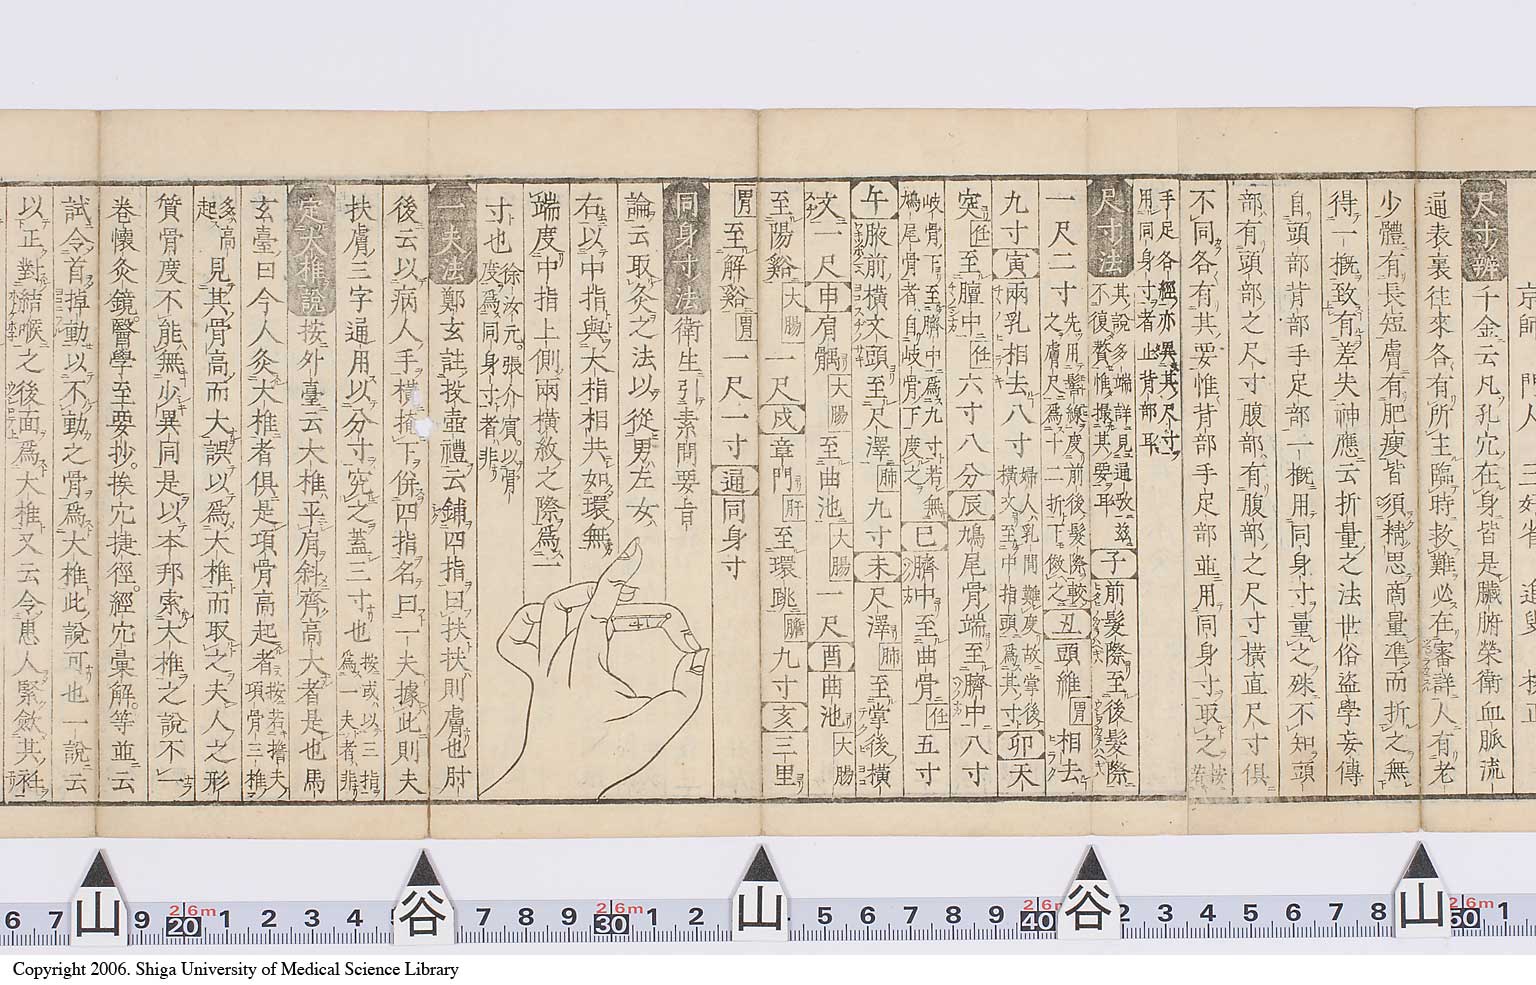 尺寸辨 千金云凡孔穴在身皆是臟腑榮衛血脈流
通表裏往來各有所主臨時救難必在審詳人有老
少體有長短膚有肥瘦皆須精思商量凖而折之無
得一概致有差失神應云折量之法世俗盜學妄傳
自頭部背部手足部一概用同身寸量之殊不知頭
部有頭部之尺寸腹部有腹部之尺寸橫直尺寸俱
不同各有其要惟背部手足部並用同身寸取之 按
手足各經亦異其尺寸
用同身寸者止背部耳
尺寸法 其說多端詳見通攷茲
不復贅惟撮其要耳 子 前髮際至後髮際
一尺二寸 先用 度前後髮際較
之膚尺爲十二折下倣之 丑 頭維 胃 相去
九寸 寅 兩乳相去八寸 婦人乳間難度故掌後
橫文至中指頭爲其寸 卯 天
突 任 至膻中 任 六寸八分 辰 鳩尾骨端至臍中八寸
岐骨下至臍中爲九寸若無
鳩尾骨者自岐骨下度之 巳 臍中至曲骨 任 五寸
午 腋前橫文頭至尺澤 肺 九寸 未 尺澤 肺 至掌後橫
文一尺 申 肩髃 大腸 至曲池 大腸 一尺 酉 曲池 大腸
至陽谿 大腸 一尺 戌 章門 肝 至環跳 膽 九寸 亥 三里
胃 至解谿 胃 一尺一寸 通 同身寸
同身寸法 衛生引素問要旨
論云取灸之法以從男左女
右以中指與大指相共如環無
端度中指上側兩橫紋之際爲一
寸也 徐汝元張介賓以骨
度爲同身寸者非
一夫法 鄭玄註投壺禮云鋪四指曰扶扶則膚也肘
後云以病人手橫掩下併四指名曰一夫據此則夫
扶膚三字通用以分寸究之蓋三寸也 按或以三指
爲一夫者非
定大椎說 按外臺云大椎平肩斜齊高大者是也馬
玄臺曰今人灸大椎者俱是項骨高起者 按若擔夫
項骨三椎
多高
起 見其骨高而大誤以爲大椎而取之夫人之形
質骨度不能無少異同是以本邦索大椎之說不一
卷懷灸鏡醫學至要抄挨穴捷徑經穴彙解等並云
試令首掉動以不動之骨爲大椎此說可也一說云
以正對結喉之後面爲大椎又云令患人緊斂其
6 7 山 9 20 1 2 3 4 谷 7 8 9 30 1 2 山 5 6 7 8 9 40 谷 2 3 4 5 6 7 8 山 50 1
2.6m 2.6m 2.6m 2.6m
Copyright 2006. Shiga University of Medical Science Library